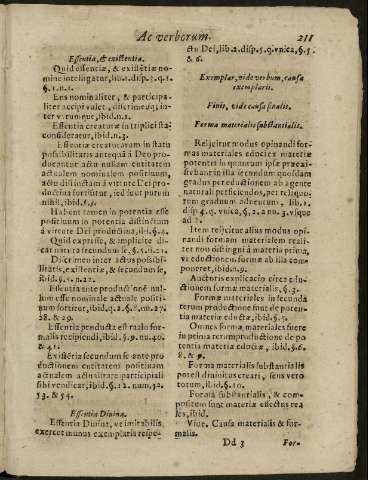 Ac verborum. 211
Essentia, & existentia.
Quid essentiæ, & existẽtiæ no-
mine intelligatur, lib.1.disp.3.q.1.
§.1.n.1.
Ens nominaliter, & participa-
liter accipi valet, distinctioq; in-
ter vtrunque, ibid.n.1.
Essentia creaturæ in triplici sta-
consideratur, ibid.n.3.
Essentia creaturarum in statu
possibilitatis antequã à Deo pro-
ducantur actu nullam entitatem
actualem nominalem positiuam,
actu distinctam à virtute Dei pro-
ductiua sortitur, sed sunt purum
nihil, ibid.§.3.
Habent tamen in potentia esse
positiuum in potentia distinctum
à virtute Dei productiua, ibi.§.4.
Quid exprisse, & implicite di-
cat natura secundum se
Discrimen inter actus possibi-
litatis, existentiæ, & secundum se,
ibid.
Essentia ente productionẽ nul-
lum esse nominale actuale positi-
uum sortitur, ibid.q.2.§.8.nu.27.
28. & 29.
Essentia producta est ratio for-
malis recipiendi, ibid.§.9. nu.40.
& 41.
Existẽtia secundum se ante pro
ductionem entitatem positiuam
actualem actualitate participiali
sibi vendicat, ibid.§.12. num.52.
53. & 54.
Essentia Diuina.
Essentia Diuina, vt imitabilis,
exercet munus exemplaris respe-
ctu Dei, lib.2.disp.5.q.vnica, §.5.
& 6.
Exemplar, vide verbum, causa
exemplaris.
Finis, vide causa finalis.
Forma materialis substantialis.
Reijcitur modus opinandi for-
mas materiales educi ex materiæ
potentia in quantum ipsæ præexi-
stebant in illa secundum quosdam
gradus pereductionem ab agente
naturali perficiendos, per reliquo-
rum gradaum aduentum, lib.1.
disp 4.q. vnica, §.2.a nu.3.vsque
ad
Item reijcitur alius modus opi-
nandi formam materialem realiter
non distingui à materia prima,
vt educitur ex potentiæ ab illa com
pooreret, ibid.n.9.
Auctoris explicatio circa edu-
ctionem formæ materialis, §.3.
Formæ materiales in secunda
rerum productione sunt de poten-
tia materiæ eductæ, ibid.§.7.
Omnes formæ materiales fuere
in prima rerum productione de po
tentia materiæ eductæ, ibid.§.6.
8. & 9.
Forma materialis substantialis
potest diuinitus creari, seus vero
totum, ibid.§.10.
Forma substantialis, & com-
positum sunt materiæ effectus rea
les, ibid.
Vide, Causa materialis & for-
malis.
Dd 3 For-